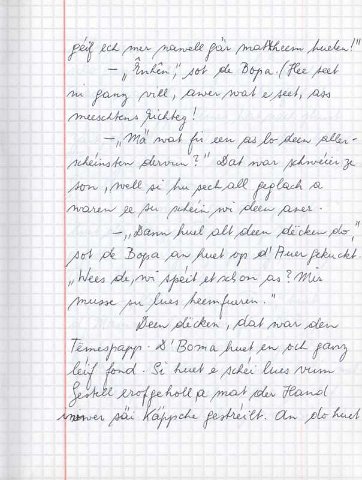 géif ech mer nawell gär mat heem huelen!"
– „Ënhën," sot de Bopa. (Hee seet
ni ganz vill, awer wat e seet, ass
meeschtens richteg!
– „Mä wat fir een as lo deen aller-
schéinsten dervun?" Dat war schwéier ze
son, well si hu sech all geglach a
waren ee su schéin wi deen aner.
– „Dann huel alt deen décken do,"
sot de Bopa an huet op d'Auer gekuckt.
„Wees de, wi spéit et schon as? Mir
musse su lues heemfueren."
Deen décken, dat war den
Témespapp. D'Boma huet en och ganz
léif fond. Si huet e schéi lues vum
Gestell erofgeholl a mat der Hand
iwwer säi Käppche gestréilt. An do huet